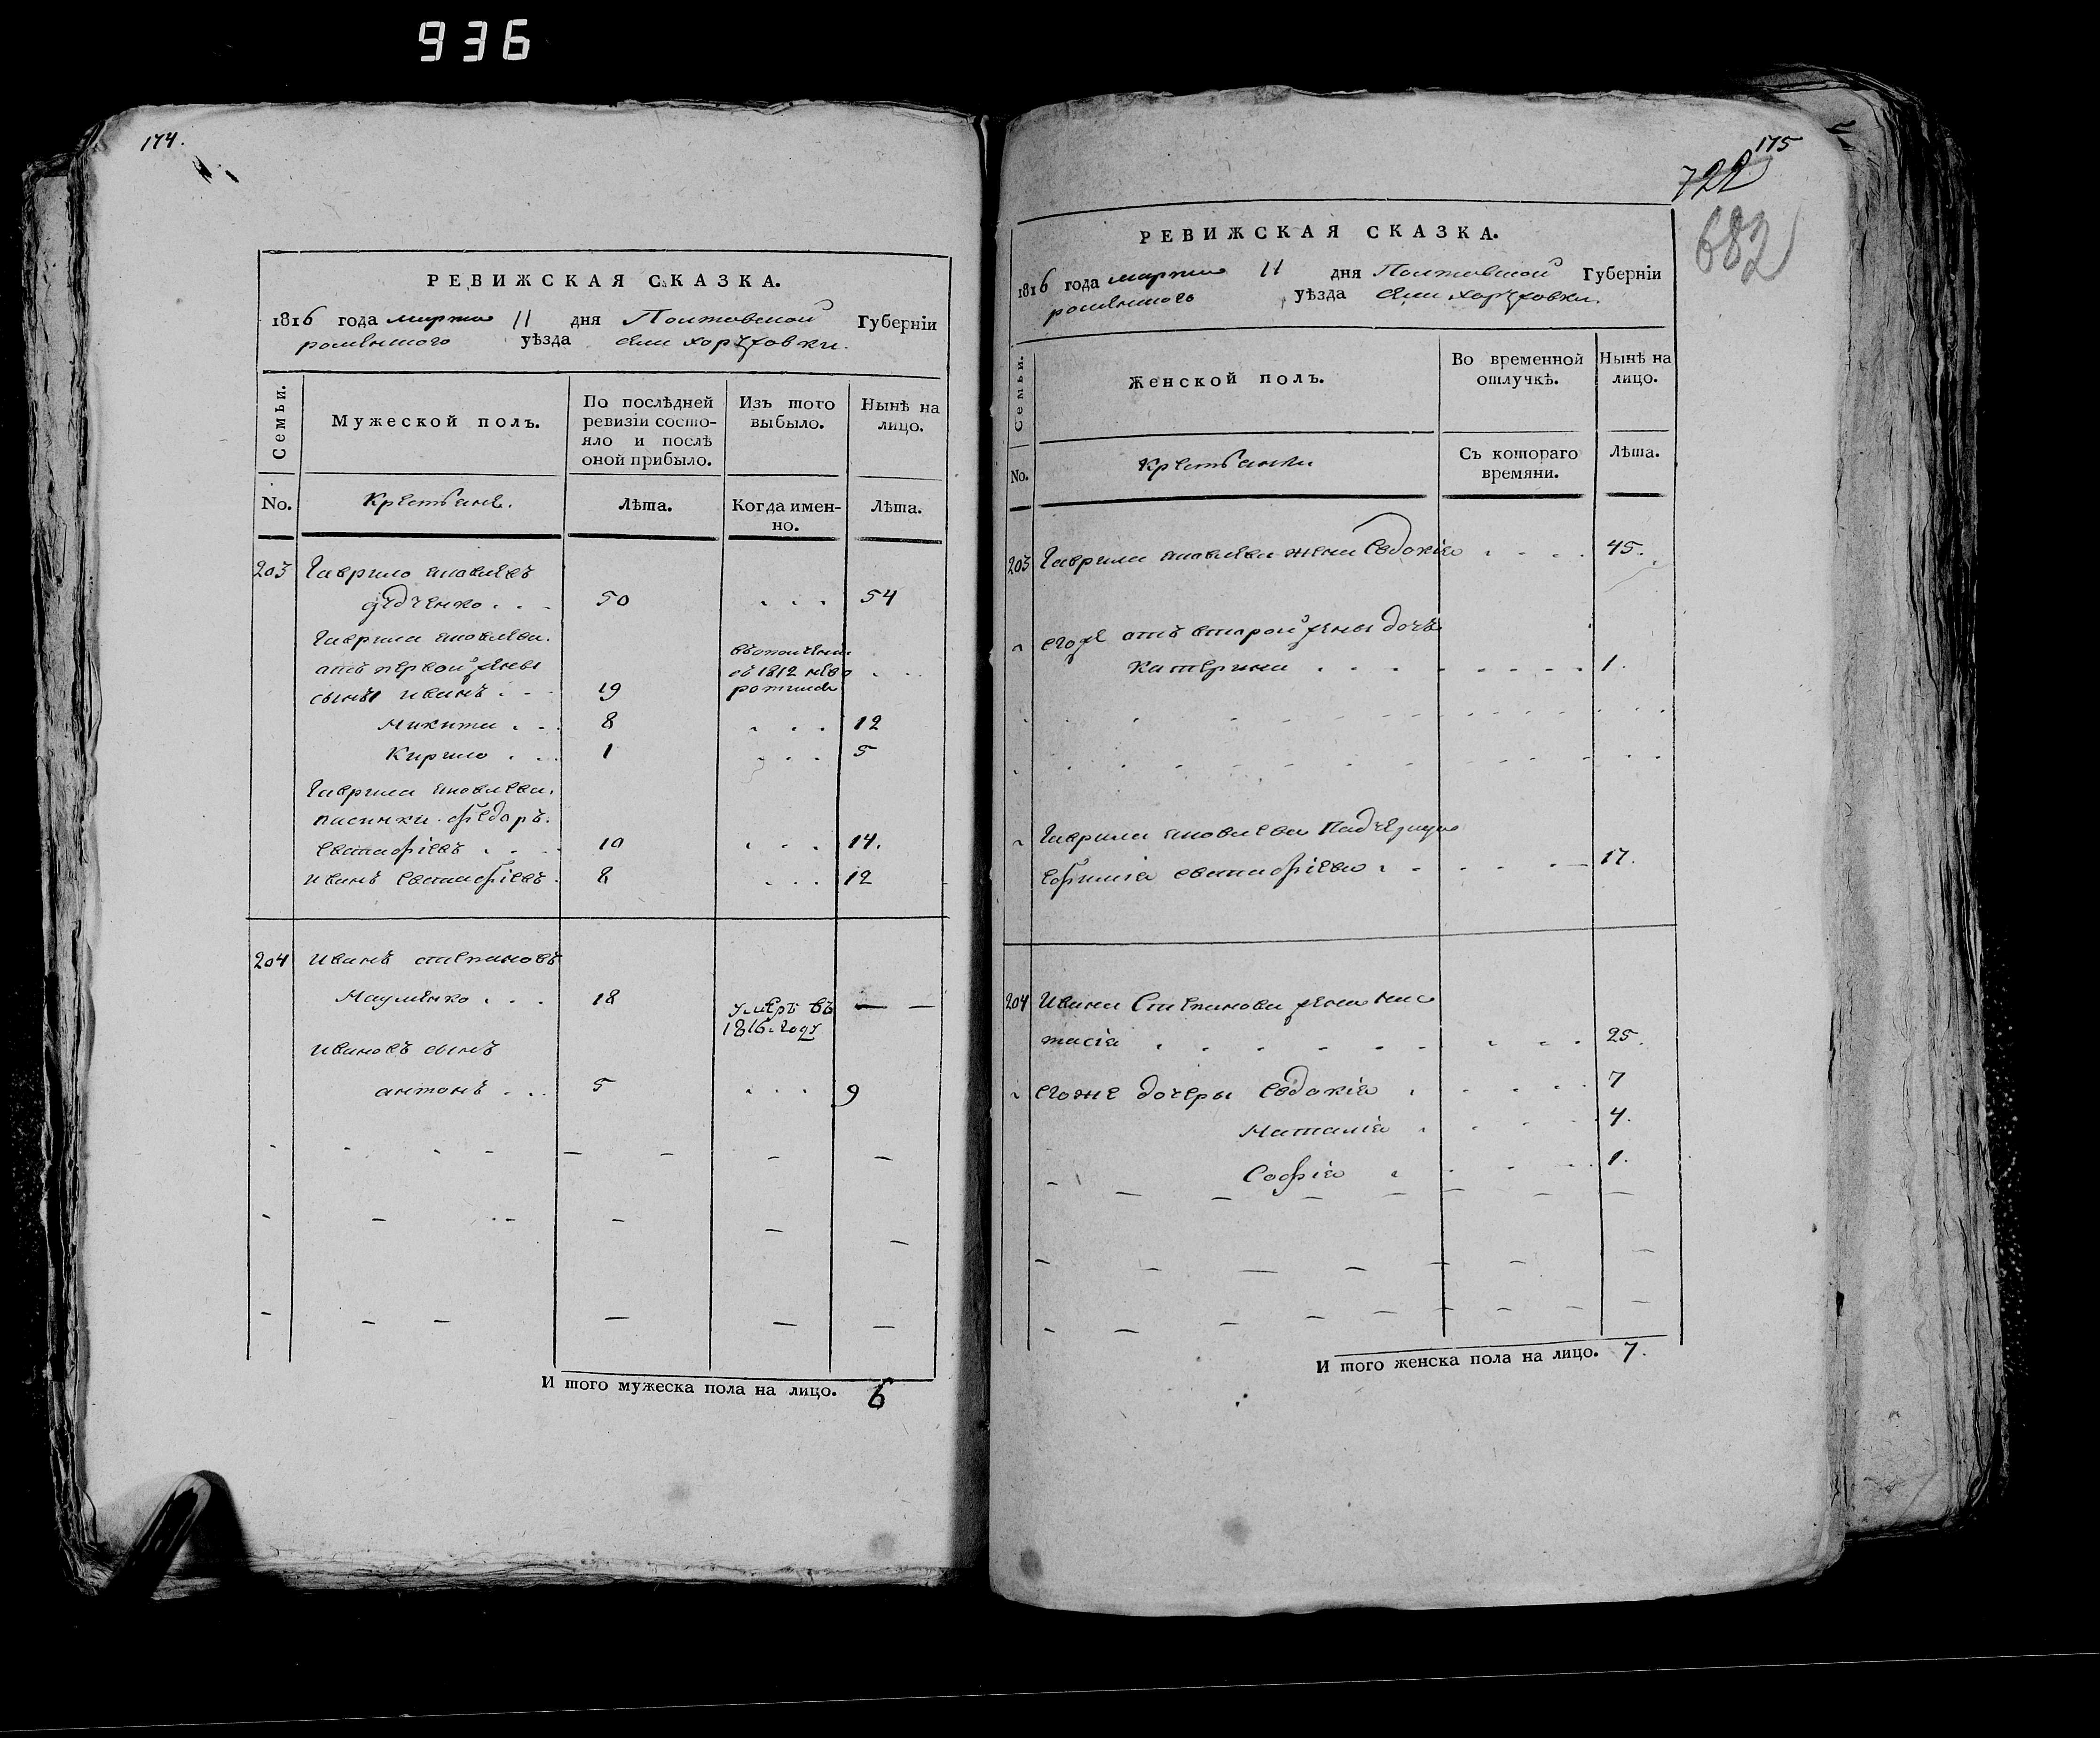 936
174.
РЕВИЖСКАЯ СКАЗКА.
1816 года марта 11 дня Полтавской Губерніи
роменского уѣзда села хоружовки.
Семьи.
Мужеской полъ.
По послѣдней ревизіи состояло и послѣ оной прибыло.
Изъ того выбыло.
Нынѣ на лицо.
No.
Крестьяне.
Лѣта.
Когда именно.
Лѣта.
203 Гаврило яковлевъ
дедченко . . . 50 . . . 54
Гаврила яковлева.
отъ первой жены
сынъ иванъ . . 19 въ 1812
Микита . . 8 . . . 12
Кирило . . 1 . . . 5
Гаврила яковлева.
пасинки федоръ.
евстафіевъ . . 10 . . . 14.
иванъ евстафіевъ . 8 . . . 12
204 иванъ степановъ
Науменко . . . 18 умеръ въ — —
1816. году
ивановъ сынъ
антонъ . . . 5 . . . 9
И того мужеска пола на лицо. 6
175
722
682
РЕВИЖСКАЯ СКАЗКА.
1816 года марта 11 дня Полтавской Губерніи
роменского уѣзда села хоружовки.
Семьи.
Женской полъ.
Во временной отлучкѣ.
Нынѣ на лицо.
No.
Крестьянки
Съ котораго времяни.
Лѣта.
203 Гаврила яковлева жена Евдокія . . . . 45.
егоже отъ второй жены дочь
Катерина . . . . . . . 1.
Гаврила яковлева Падчерица
Ефимія евстафіева . . . . . 17.
204 Ивана Степанова жена нас
тасія . . . . . . . . . . 25.
егоже дочеры Евдокія . . . . 7
Наталія . . . . 4.
Софія . . . . 1.
И того женска пола на лицо. 7.